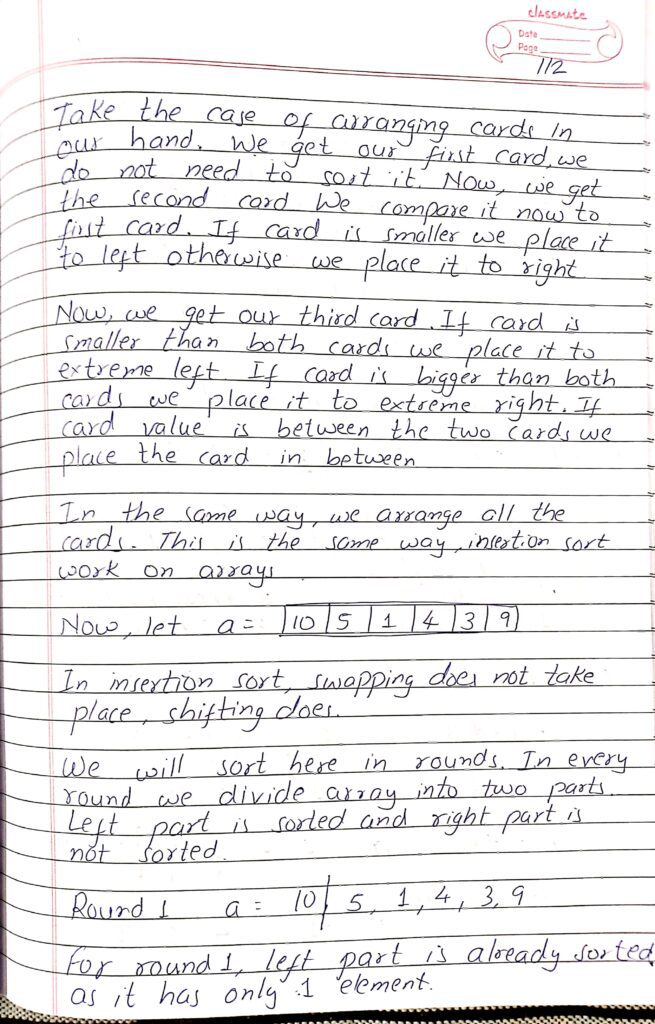 classmate
Date
Page
112
Take the case of arranging cards in
our hand. We get our first card, we
do not need to sort it. Now, we get
the second card We compare it now to
first card. If card is smaller we place it
to left otherwise we place it to right
Now, we get our third card. If card is
smaller than both cards we place it to
extreme left If card is bigger than both
cards we place it to extreme right. If
card value is between the two cards we
place the card in between
In the same way, we arrange all the
cards. This is the same way, insertion sort
work on arrays
Now, let a = 10 5 1 4 3 9
In insertion sort, swapping does not take
place, shifting does.
We will sort here in rounds. In every
round we divide array into two parts.
Left part is sorted and right part is
not sorted.
Round 1 a = 10 | 5, 1, 4, 3, 9
For round 1, left part is already sorted
as it has only 1 element.